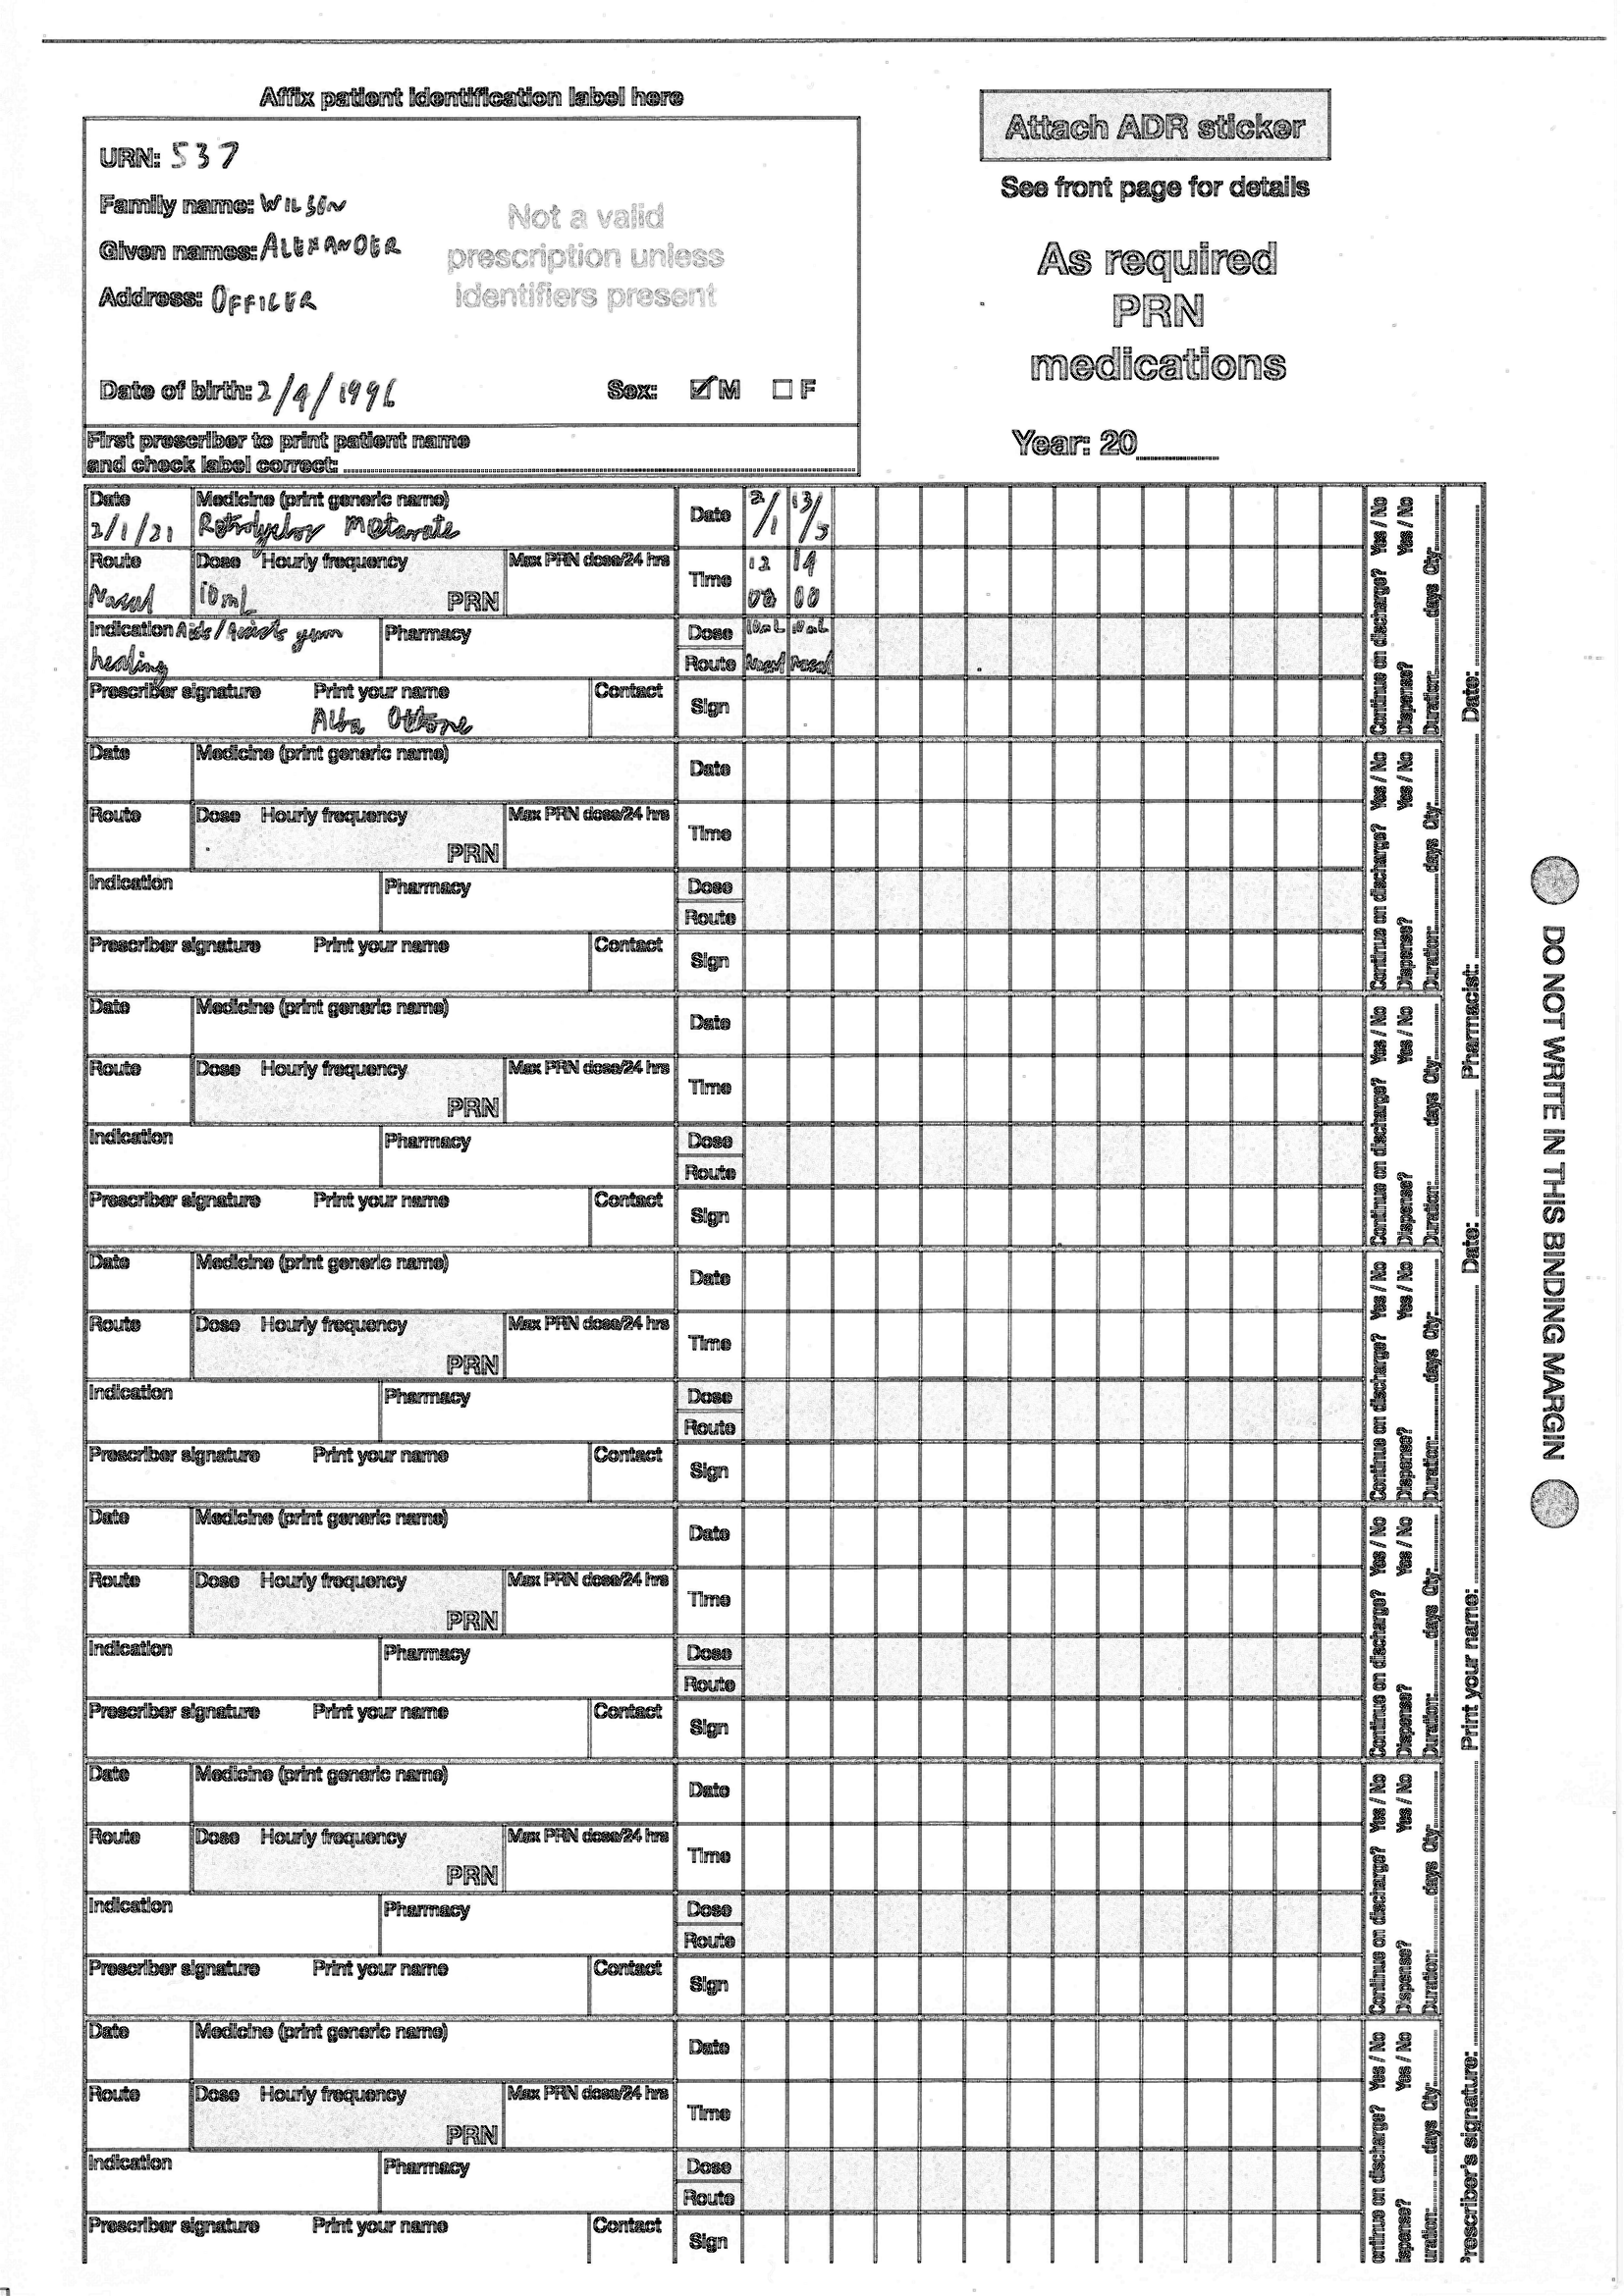 Affix patient identification label here
URN: 537
Family name: WILSON
Given names: ALEXANDER
Address: OFFICER
Not a valid
prescription unless
identifiers present
Date of birth: 2/4/1996 Sex: M F
First prescriber to print patient name
and check label correct:
Attach ADR sticker
See front page for details
As required
PRN
medications
Year: 20
Date Medicine (print generic name) Date 2/1
2/1/21
Route Dose Hourly frequency Max PRN dose/24 hrs Time 12 14
Nasal 10mL PRN 00 00
Indication Aids/Assists gum Pharmacy Dose 10mL
healing Route Nasal Nasal
Prescriber signature Print your name Contact Sign
Alba Ottone
Continue on discharge? Yes / No
Dispense? Yes / No
Duration: days Qty:
Date Medicine (print generic name) Date
Route Dose Hourly frequency Max PRN dose/24 hrs Time
PRN
Indication Pharmacy Dose
Route
Prescriber signature Print your name Contact Sign
Continue on discharge? Yes / No
Dispense? Yes / No
Duration: days Qty:
Date Medicine (print generic name) Date
Route Dose Hourly frequency Max PRN dose/24 hrs Time
PRN
Indication Pharmacy Dose
Route
Prescriber signature Print your name Contact Sign
Continue on discharge? Yes / No
Dispense? Yes / No
Duration: days Qty:
Date Medicine (print generic name) Date
Route Dose Hourly frequency Max PRN dose/24 hrs Time
PRN
Indication Pharmacy Dose
Route
Prescriber signature Print your name Contact Sign
Continue on discharge? Yes / No
Dispense? Yes / No
Duration: days Qty:
Date Medicine (print generic name) Date
Route Dose Hourly frequency Max PRN dose/24 hrs Time
PRN
Indication Pharmacy Dose
Route
Prescriber signature Print your name Contact Sign
Continue on discharge? Yes / No
Dispense? Yes / No
Duration: days Qty:
Date Medicine (print generic name) Date
Route Dose Hourly frequency Max PRN dose/24 hrs Time
PRN
Indication Pharmacy Dose
Route
Prescriber signature Print your name Contact Sign
Continue on discharge? Yes / No
Dispense? Yes / No
Duration: days Qty:
Date Medicine (print generic name) Date
Route Dose Hourly frequency Max PRN dose/24 hrs Time
PRN
Indication Pharmacy Dose
Route
Prescriber signature Print your name Contact Sign
ontinue on discharge? Yes / No
ispense? Yes / No
uration: days Qty:
rescriber's signature: Print your name: Date: Pharmacist: Date:
DO NOT WRITE IN THIS BINDING MARGIN